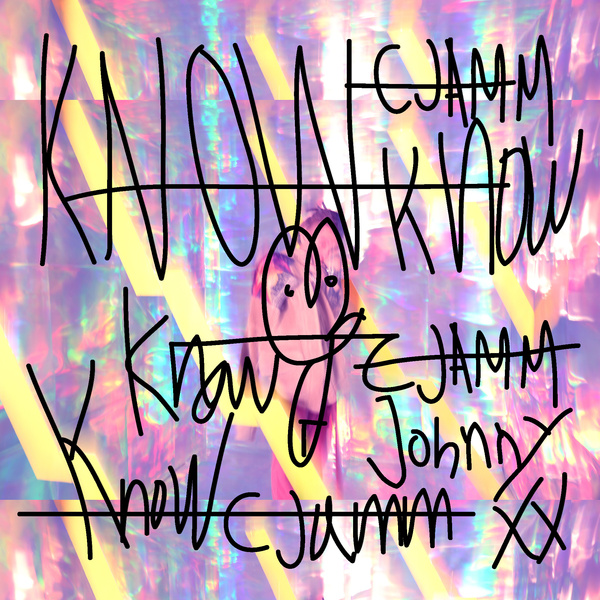 KNOW CJAMM
KNOW
Know CJAMM
Johnny
Know Cjamm XX